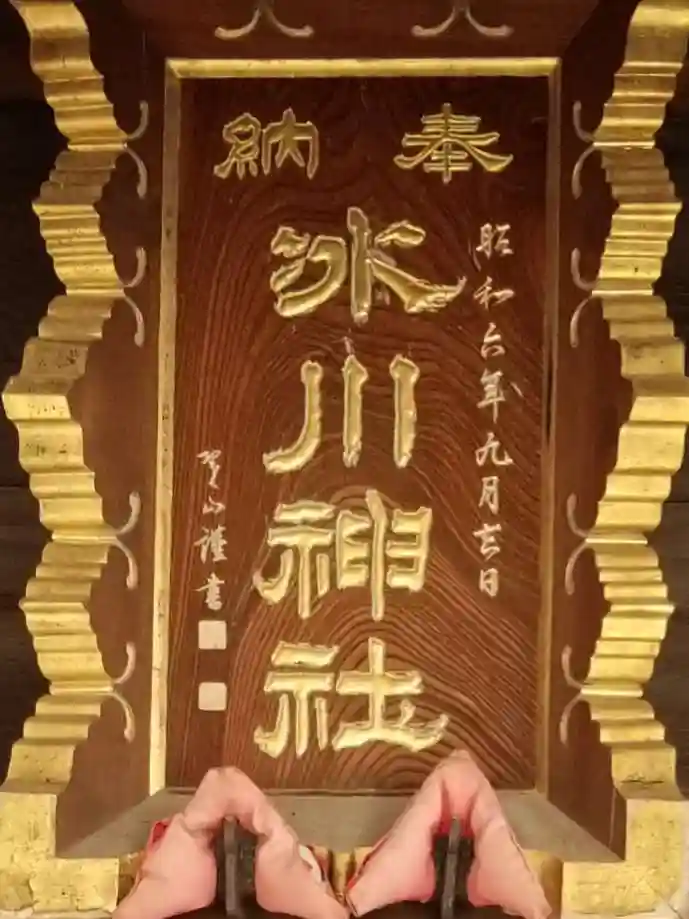 奉納
昭和六年九月吉日
氷川神社
山謹書